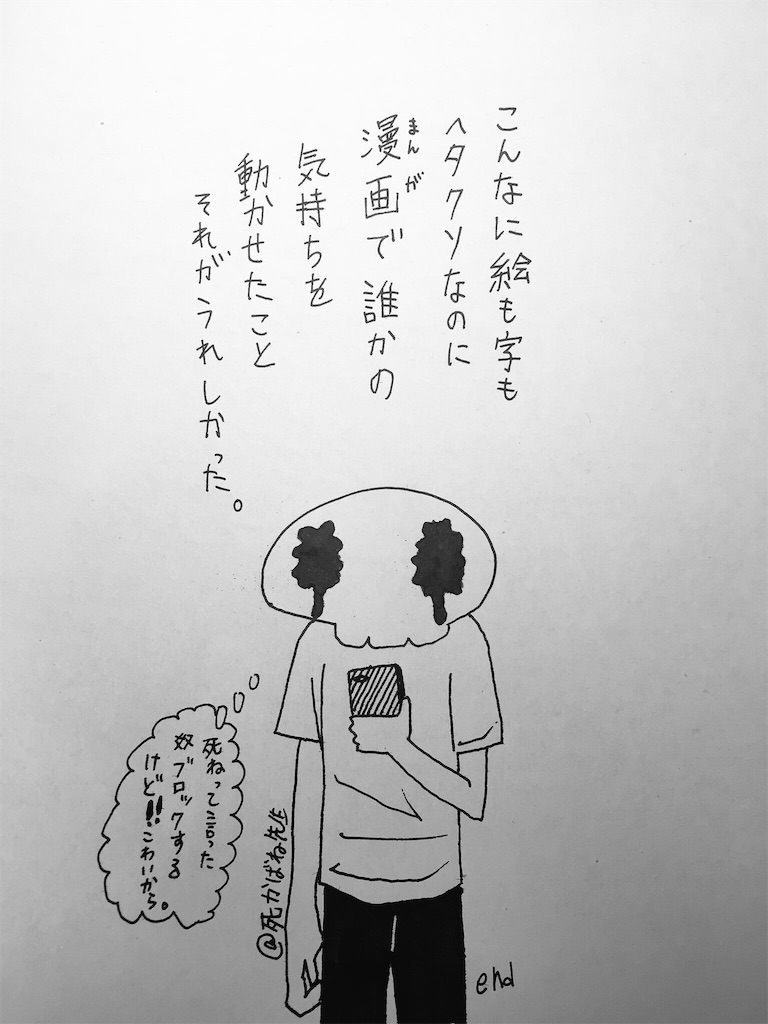 こんなに絵も字も
ヘタクソなのに
漫画で誰かの
まんが
気持ちを
動かせたこと
それがうれしかった。
死ねって言った
奴ブロックする
けど!!こわいから。
@死かばね先生
end